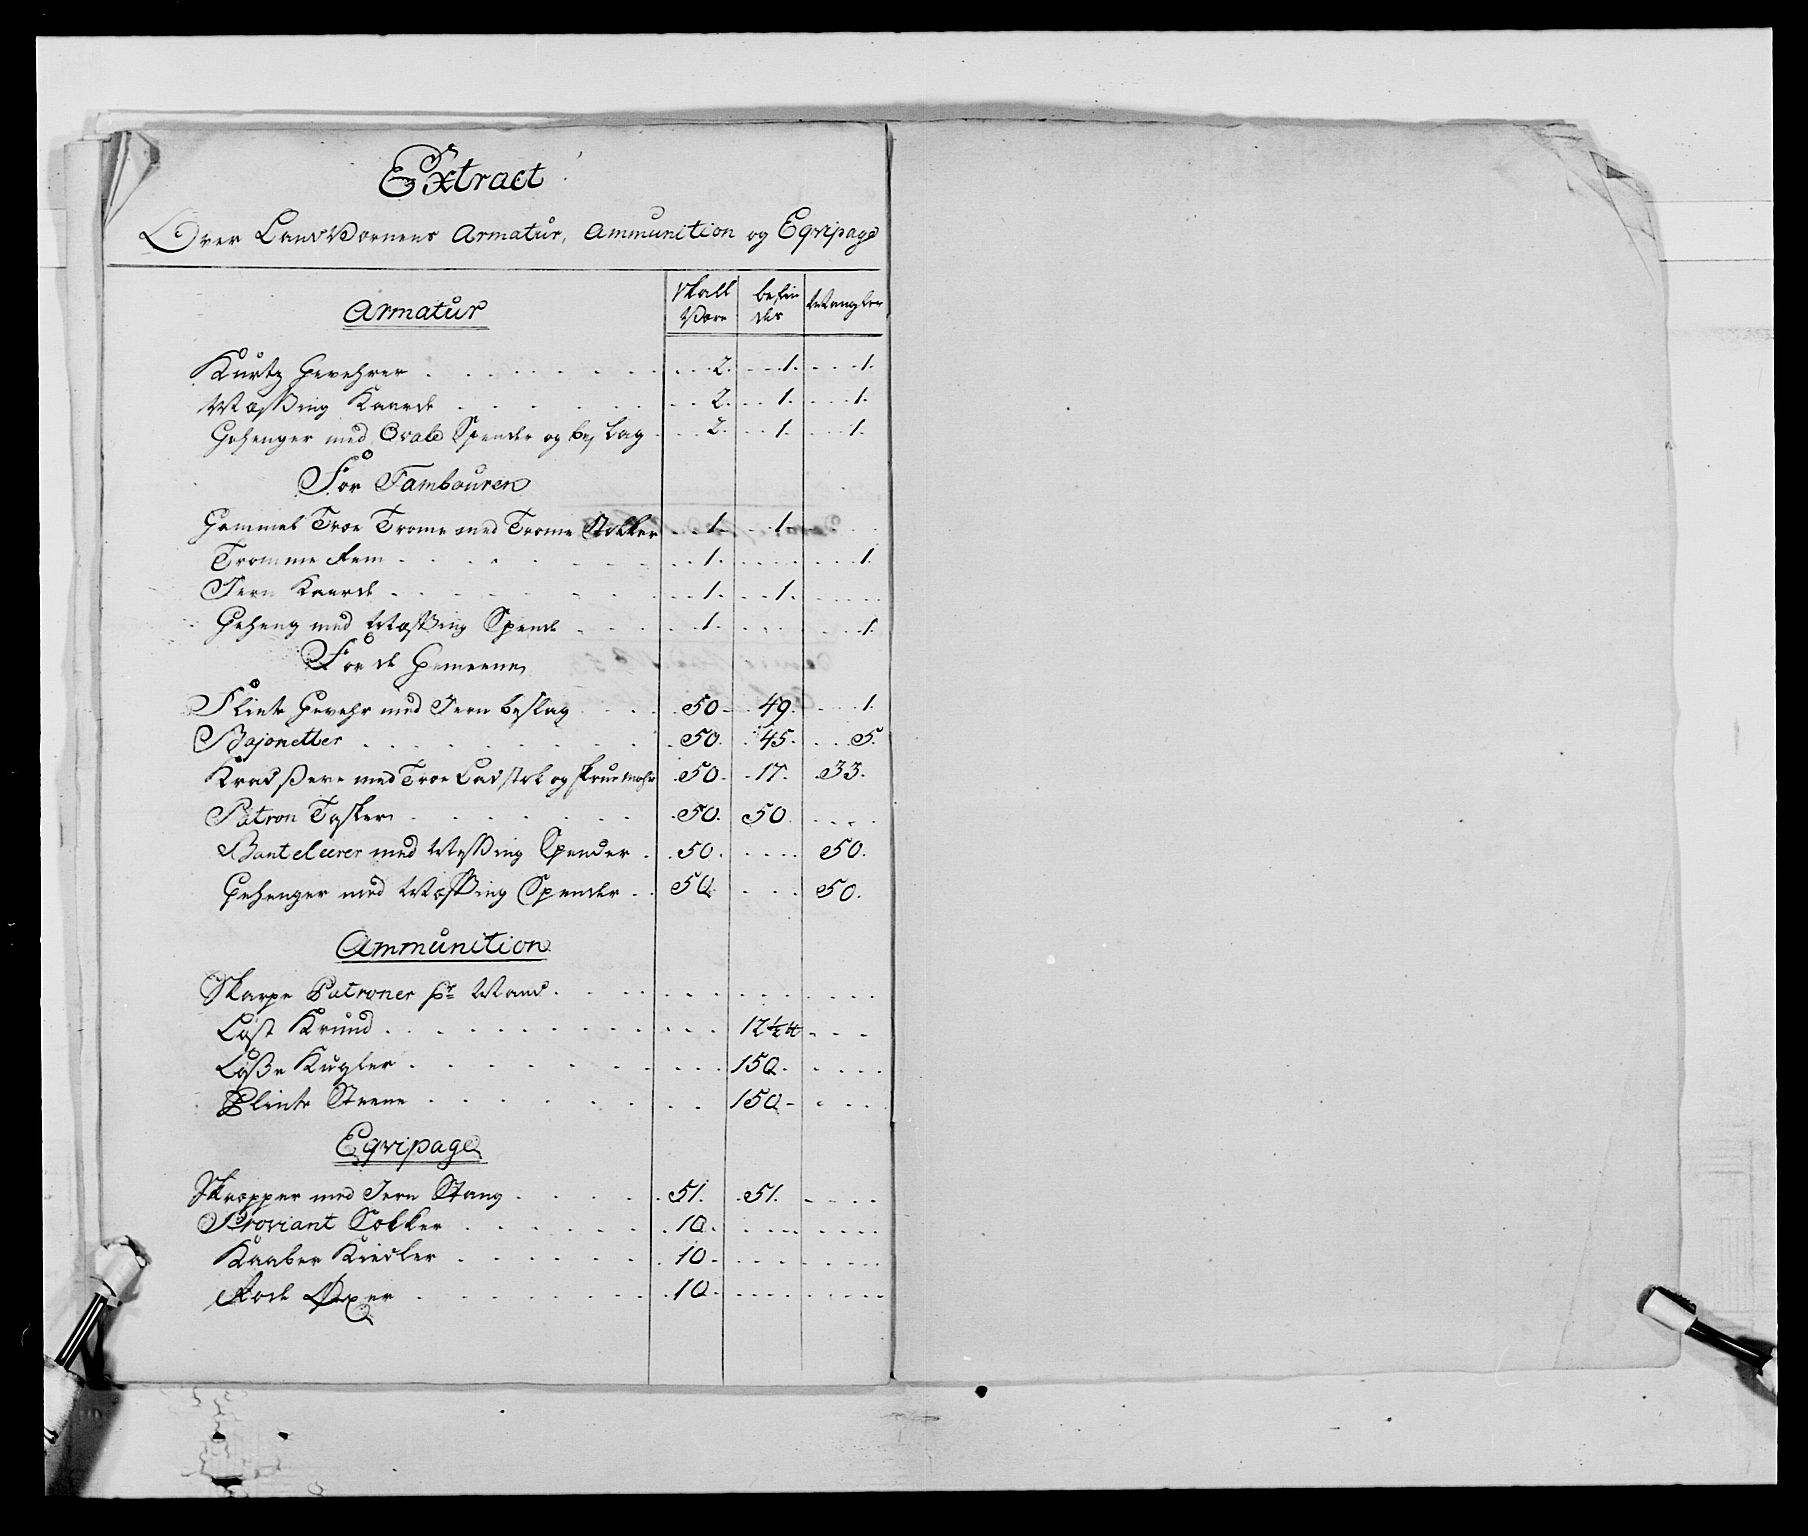 Extract
Over LandVærnens Armatur, Ammunition og Eqvipage
Armatur
skall Være
befin des
Mangler
Kurtz Gevehrer 2. 1. 1.
Mæssing Kaarde 2. 1. 1.
Gehenger med Ovale Spender og beslag 2. 1. 1.
For Tambouren
Gammel Træe Trome med Trome Stokker 1. 1.
Tromme Rem 1. 1.
Jern Kaarde 1. 1.
Geheng med Mæssing Spende 1. 1.
For de Gemeene
Flinte Gevehr med Jern beslag 50. 49. 1.
Bajonetter 50. 45. 5.
Kradsere med Træe Ladstok og skrue 50. 17. 33.
Patron Tasker 50. 50.
Bantelerer med Messing Spender 50. 50.
Gehenger med Mæssing Spender 50. 50.
Ammunition
Skarpe Patroner pr Mand
Løst Krud 12½ ℔
Løsse Kugler 150.
Flinte Steene 150
Eqvipage
Skræpper med Jern Stang 51. 51.
Proviant Sækker 10.
Kaaber Kiedler 10
Rode Øxer 10.